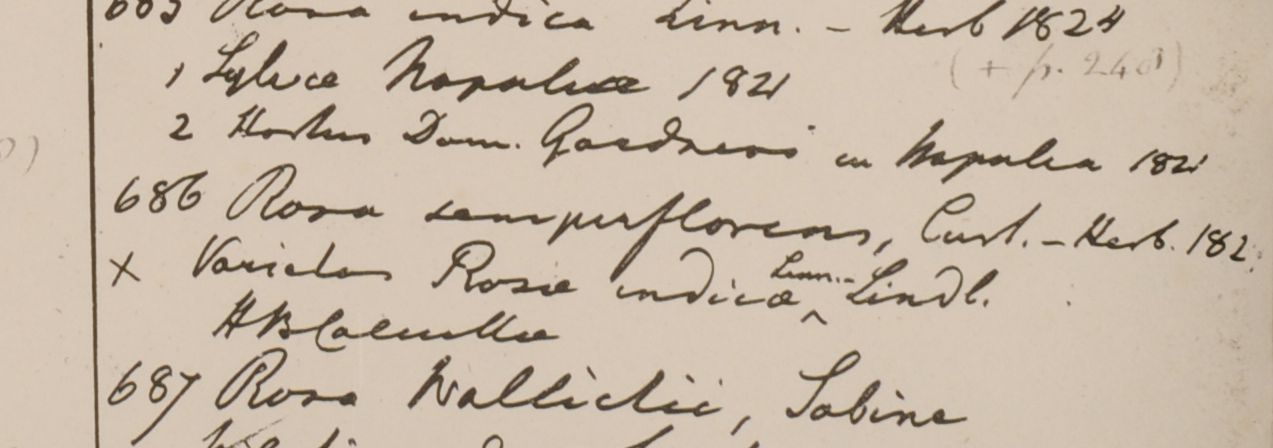 685 Rosa indica Linn. - Herb 1824
(+ p. 240)
1 Sylvae Napaliae 1821
2 Hortus Dom. Gardneri in Napalia 1821
686 Rosa semperflorens, Curt. - Herb. 182
x Varietas Rosae indicae Linn. - Lindl.
HBCalcuttae
687 Rosa Wallichii, Sabine